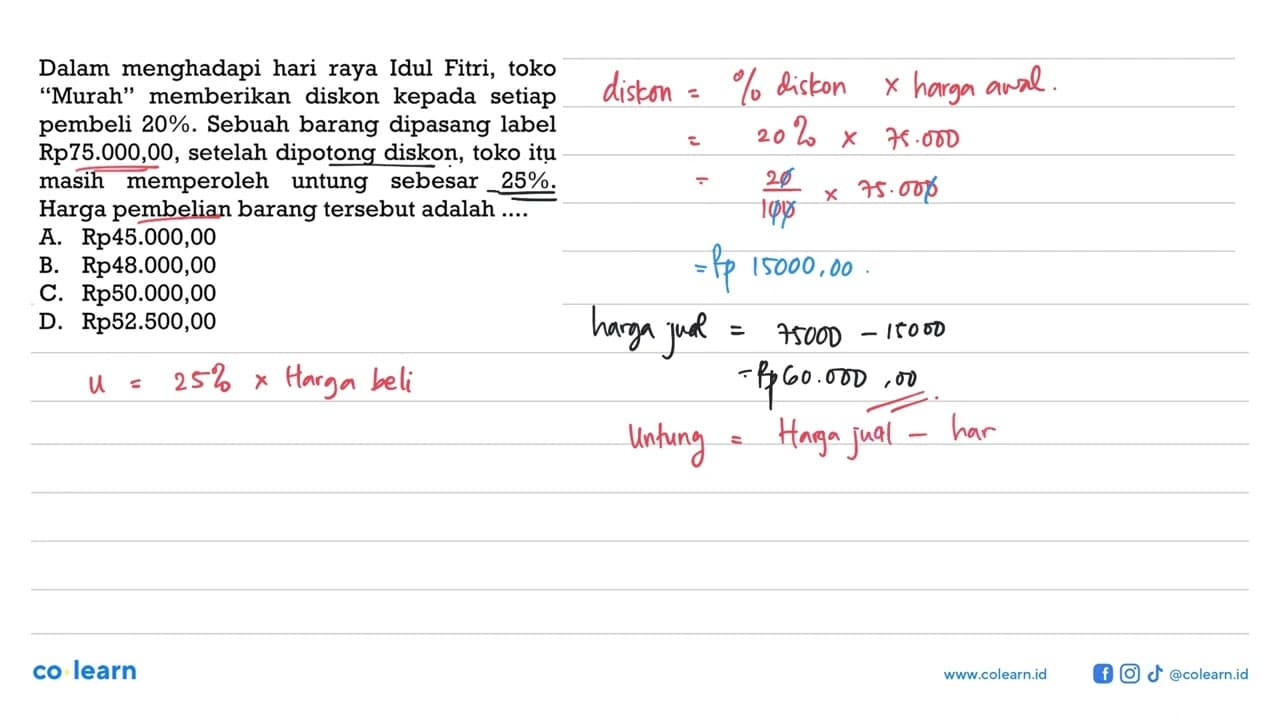 Dalam menghadapi hari raya Idul Fitri, toko
“Murah” memberikan diskon kepada setiap
pembeli 20%. Sebuah barang dipasang label
Rp75.000,00, setelah dipotong diskon, toko itu
masih memperoleh untung sebesar 25%.
Harga pembelian barang tersebut adalah ....
A. Rp45.000,00
B. Rp48.000,00
C. Rp50.000,00
D. Rp52.500,00
u = 25% × Harga beli
diskon = % diskon × harga awal.
= 20% × 75.000
= 20/100 × 75.000
= Rp 15000,00.
harga jual = 75000 - 15000
= Rp 60.000,00.
Untung = Harga jual - har
co learn
www.colearn.id
@colearn.id